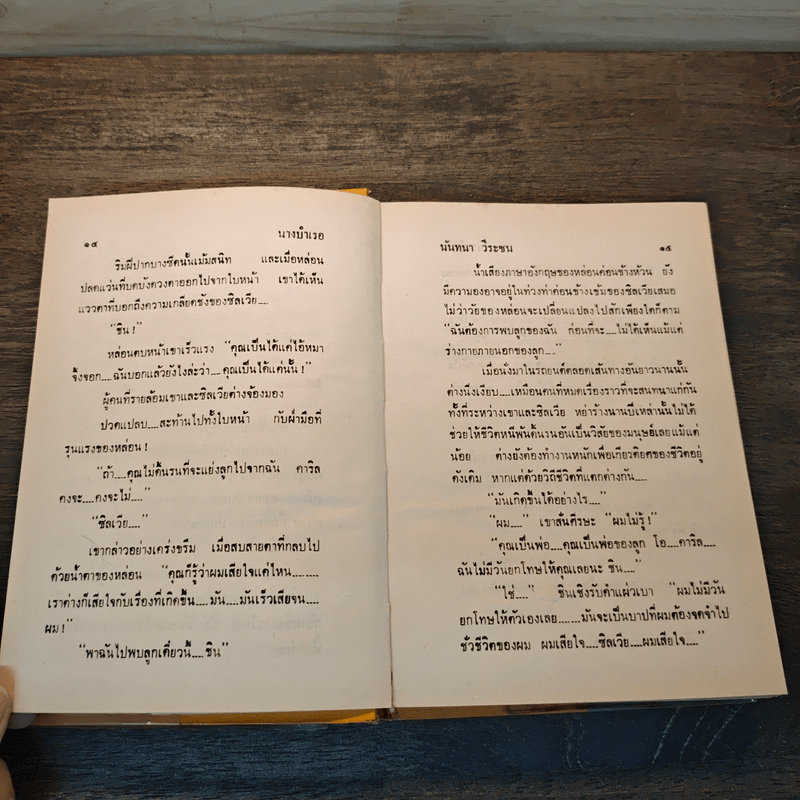 ๑๔
นางบำเรอ
ริมฝีปากบางซีดนั้นเม้มสนิท และเมื่อหล่อน
ปลดแว่นที่บดบังดวงตาออกไปจากใบหน้า เขาได้เห็น
แววตาที่บอกถึงความเกลียดชังของซิลเวีย....
“ชิน !”
หล่อนตบหน้าเขาเร็วแรง “คุณเป็นได้แค่ไอ้หมา
จิ้งจอก....ฉันบอกแล้วยังไงล่ะว่า....คุณเป็นได้แค่นั้น !”
ผู้คนที่รายล้อมเขาและซิลเวียต่างจ้องมอง
ปวดแปลบ....สะท้านไปทั้งใบหน้า กับฝ่ามือที่
รุนแรงของหล่อน !
“ถ้า....คุณไม่ดิ้นรนที่จะแย่งลูกไปจากฉัน คาริล
คงจะ....คงจะไม่....”
“ซิลเวีย....”
เขากล่าวอย่างเคร่งขรึม เมื่อสบสายตาที่กลบไป
ด้วยน้ำตาของหล่อน “คุณก็รู้ว่าผมเสียใจแค่ไหน........
เราต่างก็เสียใจกับเรื่องที่เกิดขึ้น....มัน....มันเร็วเสียจน....
ผม !”
“พาฉันไปพบลูกเดี๋ยวนี้....ชิน”
นันทนา วีระชน
๑๕
น้ำเสียงภาษาอังกฤษของหล่อนค่อนข้างห้วน ยัง
มีความองอาจอยู่ในท่วงท่าค่อนข้างเข้มของซิลเวียเสมอ
ไม่ว่าวัยของหล่อนจะเปลี่ยนแปลงไปสักเพียงใดก็ตาม
“ฉันต้องการพบลูกของฉัน ก่อนที่จะ....ไม่ได้เห็นแม้แต่
ร่างกายภายนอกของลูก....”
เมื่อนั่งมาในรถยนต์ตลอดเส้นทางอันยาวนานนั้น
ต่างนิ่งเงียบ....เหมือนคนที่หมดเรื่องราวที่จะสนทนาแก่กัน
ทั้งที่ระหว่างเขาและซิลเวีย หย่าร้างนานปีเหล่านั้นไม่ได้
ช่วยให้ชีวิตหนีพ้นดิ้นรนอันเป็นวิสัยของมนุษย์เลยแม้แต่
น้อย ต่างยังต้องทำงานหนักเพื่อเกียรติยศของชีวิตอยู่
ดังเดิม หากแต่ด้วยวิถีชีวิตที่แตกต่างกัน....
“มันเกิดขึ้นได้อย่างไร....”
“ผม....” เขาสั่นศีรษะ “ผมไม่รู้ !”
“คุณเป็นพ่อ....คุณเป็นพ่อของลูก โอ....คาริล....
ฉันไม่มีวันยกโทษให้คุณเลยนะ ชิน....”
“ใช่....” ชินเชิงรับคำแผ่วเบา “ผมไม่มีวัน
ยกโทษให้ตัวเองเลย........มันจะเป็นบาปที่ผมต้องจดจำไป
ชั่วชีวิตของผม ผมเสียใจ....ซิลเวีย....ผมเสียใจ....”